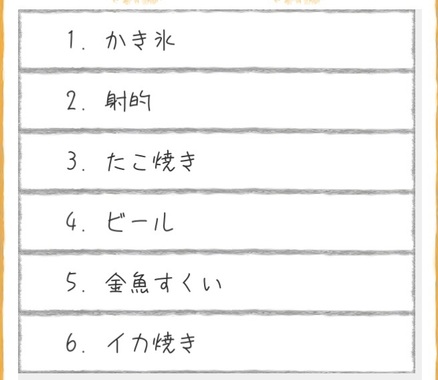 1. かき氷
2. 射的
3. たこ焼き
4. ビール
5. 金魚すくい
6. イカ焼き